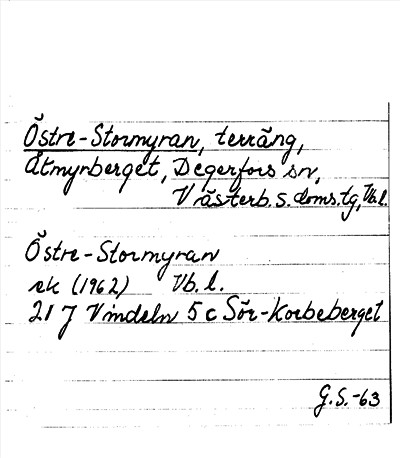 Östre-Stormyran, terräng,
Åtmyrberget, Degerfors sn,
Västerb. s. doms. tg, Vb. l.
Östre-Stormyran
ek (1962) Vb. l.
21 J Vindeln 5 c Sör-Korbeberget
G.S.-63